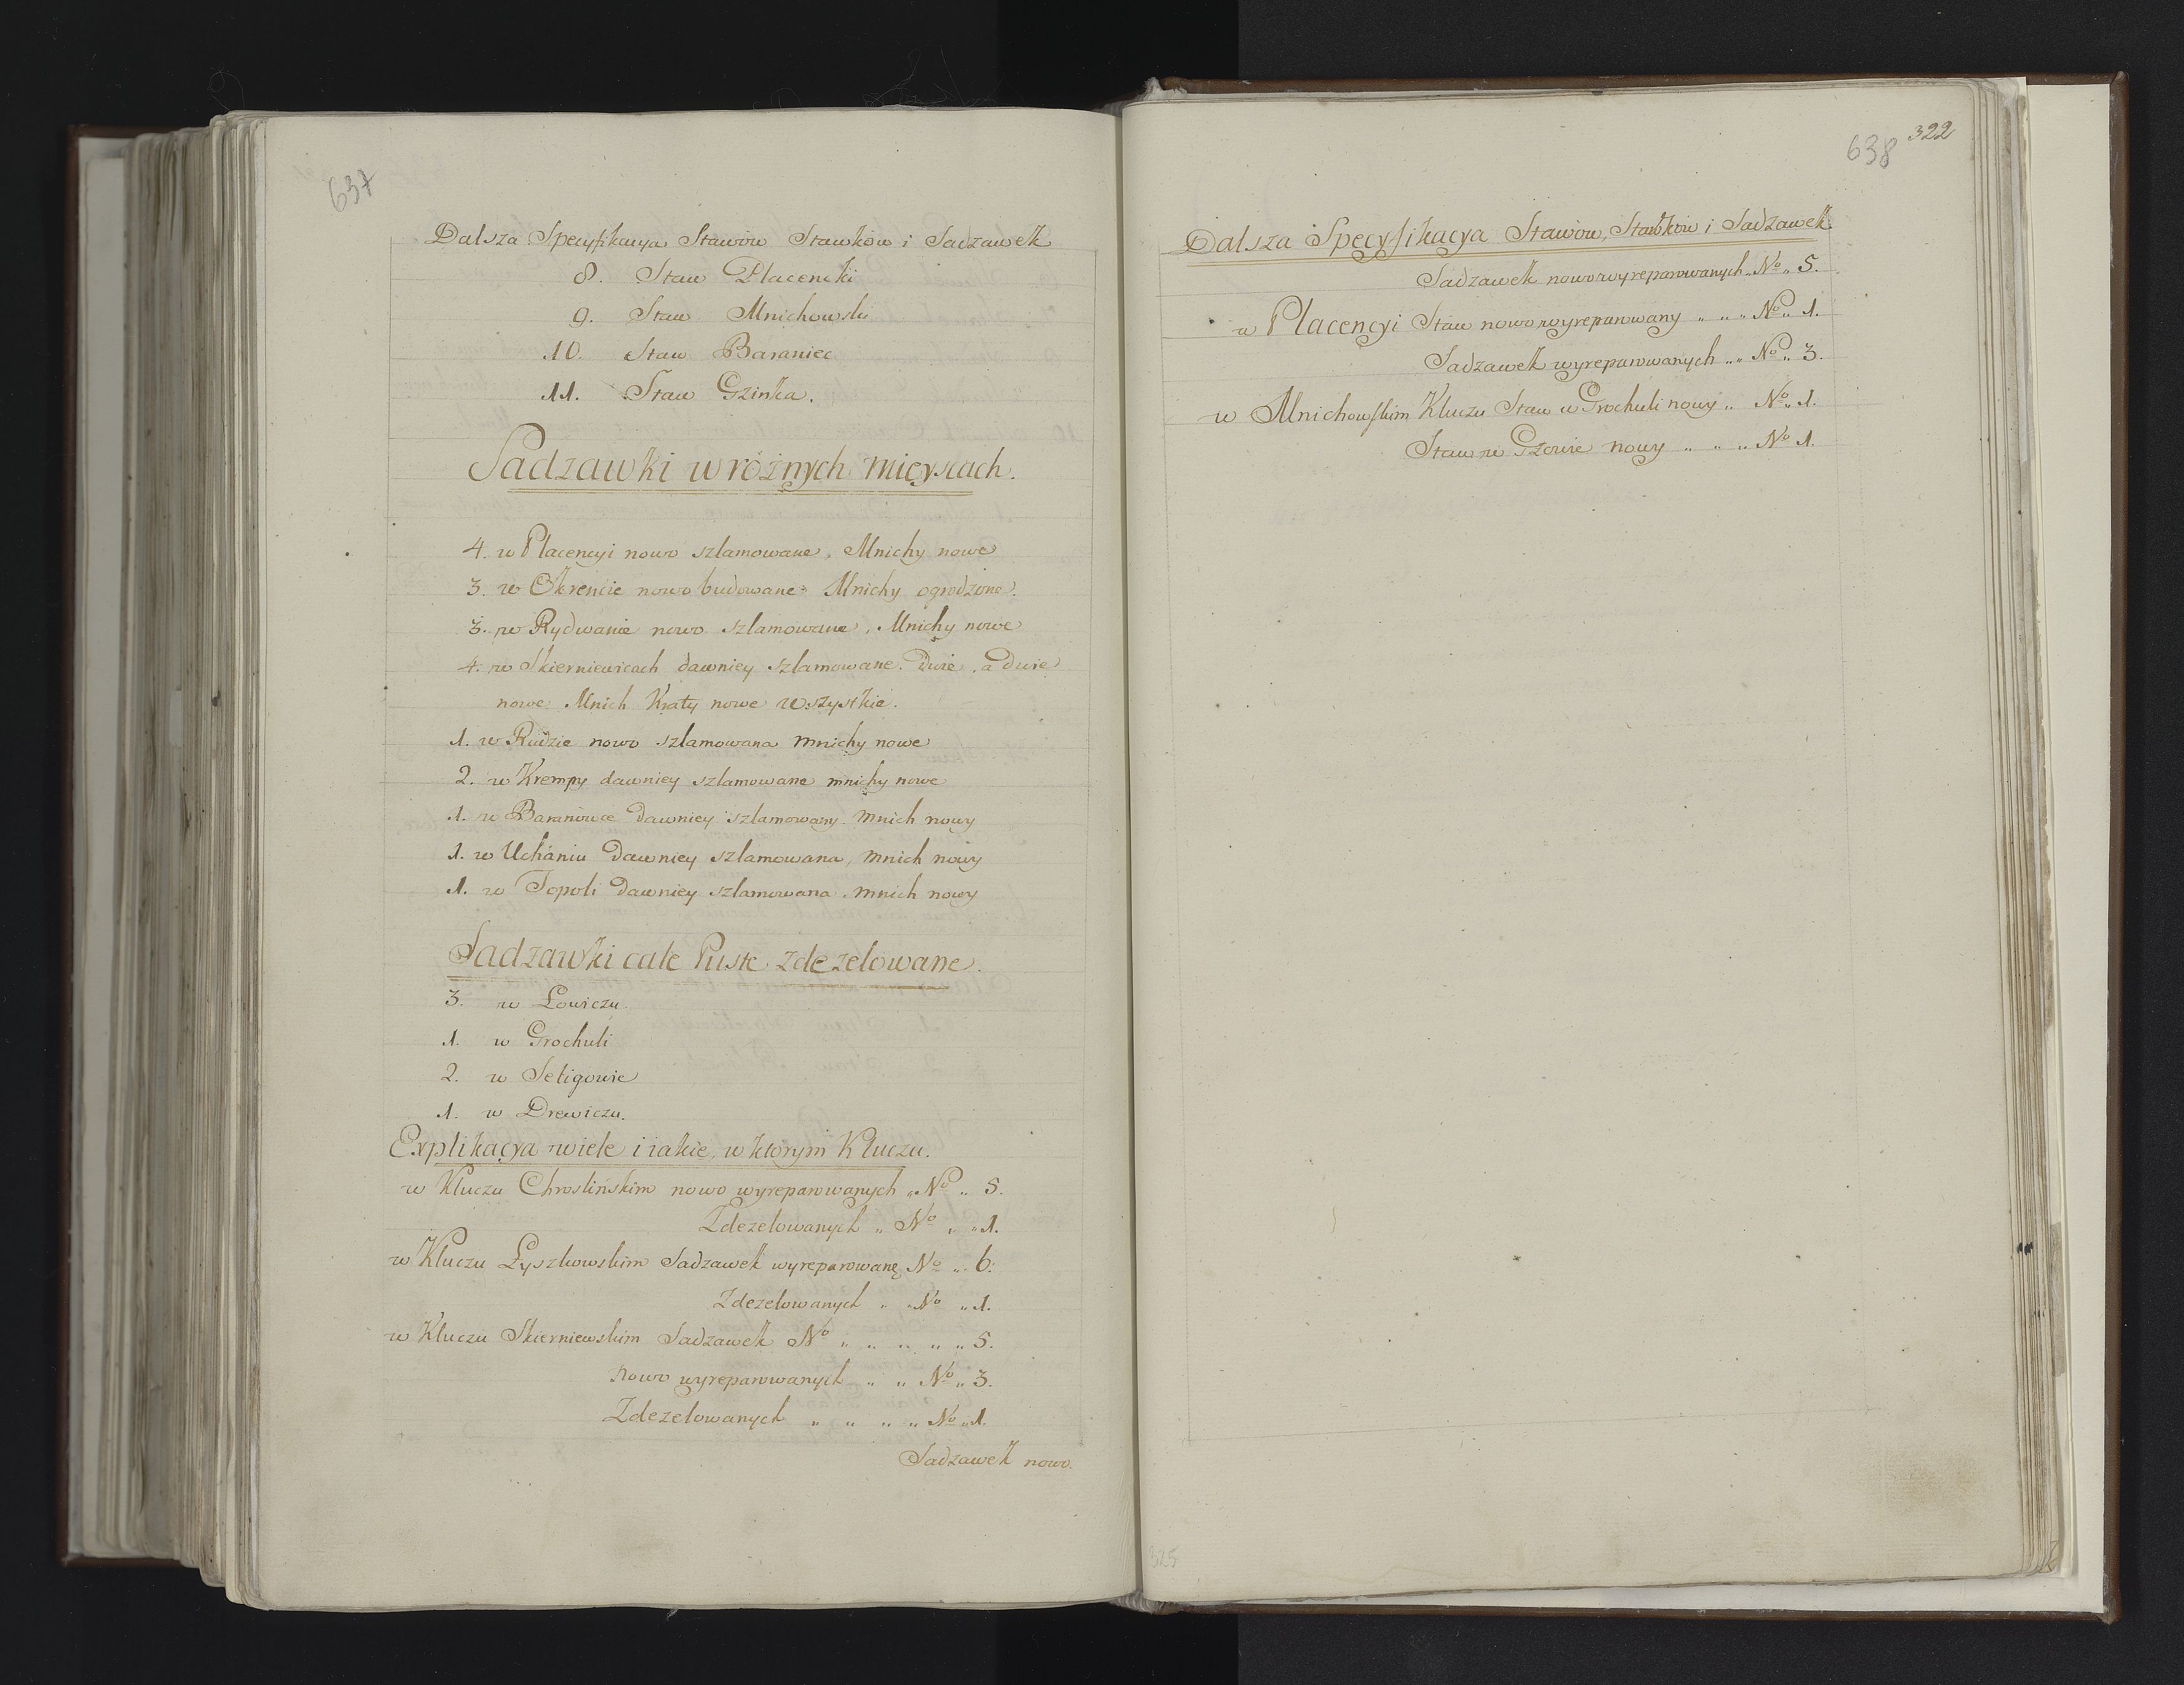 637
Dalsza Specyfikacya Stawow Stawkow i Sadzawek
8. Staw Placencki
9. Staw Mnichowski
10. Staw Baraniec
11. Staw Gzinka.
Sadzawki w różnych mieyscach.
4. w Placencyi nowo szlamowane, Mnichy nowe
3. w Okrencie nowo budowane Mnichy ogrodzone.
3. w Rydwanie nowo szlamowane, Mnichy nowe
4. w Skierniewicach dawniey szlamowane. Dwie, a dwie
nowe Mnich Kraty nowe wszystkie.
1. w Rudzie nowo szlamowana mnichy nowe
2. w Krempy dawniey szlamowane mnichy nowe
1. w Baranowce dawniey szlamowany. mnich nowy
1. w Uchaniu dawniey szlamowana, mnich nowy
1. w Topoli dawniey szlamowana. mnich nowy
Sadzawki całe Puste zdezelowane.
3. w Łowiczu.
1. w Grochuli
2. w Seligowie
1. w Drewiczu.
Explikacya wiele i iakie, w ktorym Kluczu.
w Kluczu Chroslińskim nowo wyreparowanych „ No „ 5.
Zdezelowanych „ No „ „ 1.
w Kluczu Łyszkowskim Sadzawek wyreparowane No „ 6.
Zdezelowanych „ „ No „ 1.
w Kluczu Skierniewskim Sadzawek No „ „ „ „ „ 5.
nowo wyreparowanych „ „ No „ 3.
Zdezelowanych „ „ „ „ No „ 1.
Sadzawek nowo.
638 322
Dalsza Specyfikacya Stawow, Stawkow i Sadzawek
Sadzawek nowo wyreparowanych „ No „ 5.
w Placencyi Staw nowo wyreparowany „ „ „ No „ 1.
Sadzawek wyreparowanych „ „ No „ 3.
w Mnichowskim Kluczu Staw w Grochuli nowy „ No „ 1.
Staw w Gzowie nowy „ „ „ No 1.
325